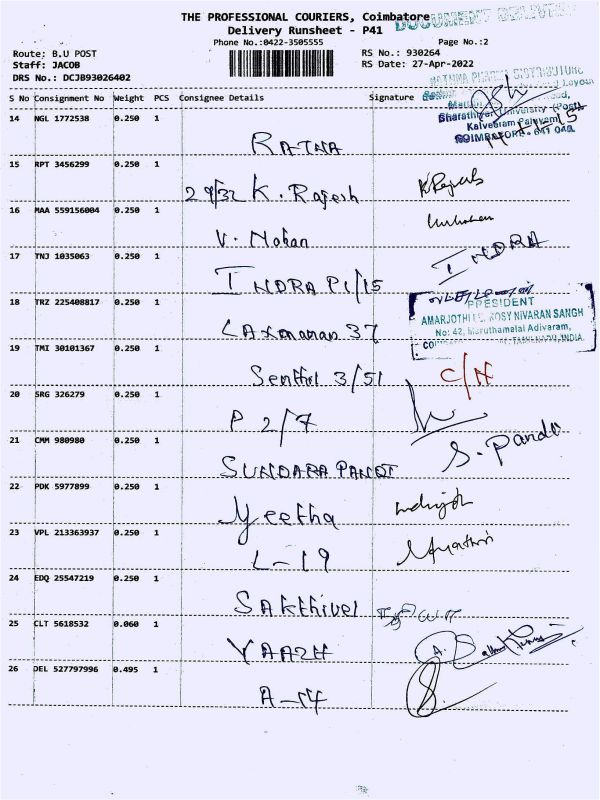 THE PROFESSIONAL COURIERS, Coimbatore
Delivery Runsheet - P41
Phone No.:0422-3505555
Page No.:2
Route; B.U POST
Staff: JACOB
DRS No.: DCJB93026402
RS No.: 930264
RS Date: 27-Apr-2022
S No Consignment No Weight PCS Consignee Details Signature
14 NGL 1772538 0.250 1
Bharathiyar University (Post)
Kalveeram Palayam,
COIMBATORE - 641 046.
RATNA
15 RPT 3456299 0.250 1
29/32 K. Rajesh
16 MAA 559156004 0.250 1
V. Mohan
17 TNJ 1035063 0.250 1
INDRA
INDRA P1/15
18 TRZ 225408817 0.250 1
PRESIDENT
AMARJOTHI ROSY NIVARAN SANGH
No: 42, Maruthamalai Adivaram,
TAMILNADU, INDIA.
Laxmanan 37
19 TMI 30101367 0.250 1
Senthil 3/51 C/N
20 SRG 326279 0.250 1
P 2/7
21 CMM 980980 0.250 1
S. Pandi
SUNDARA PANDI
22 PDK 5977899 0.250 1
Geetha
23 VPL 213363937 0.250 1
L-19
24 EDQ 25547219 0.250 1
SAkthivel
25 CLT 5618532 0.060 1
YAAZH
26 DEL 527797996 0.495 1
A-14